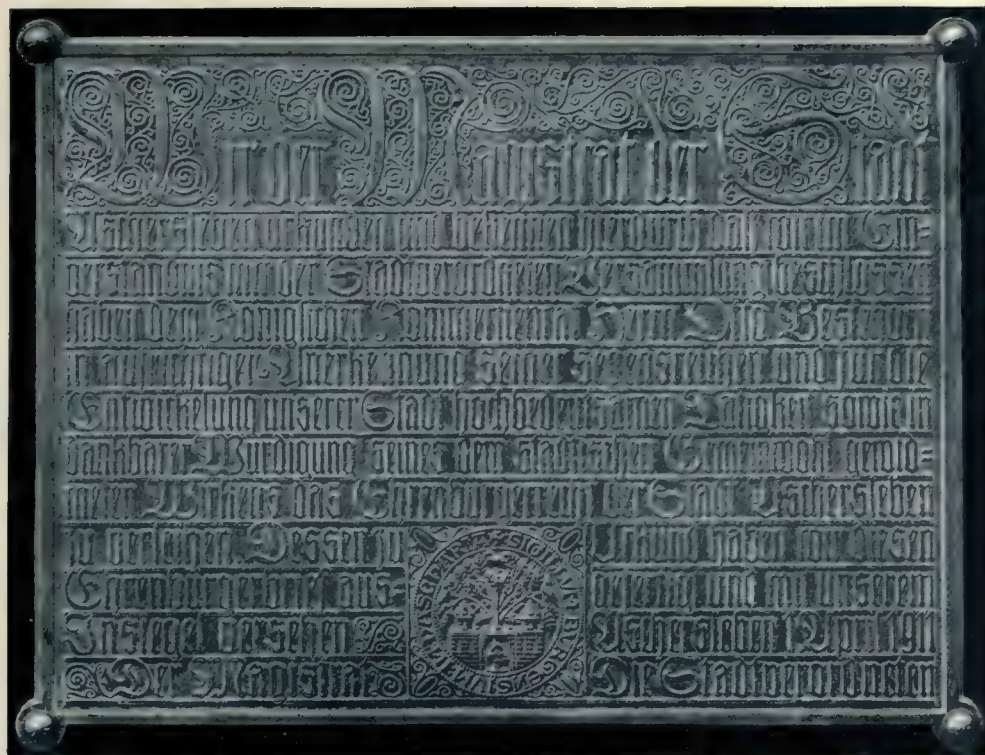 Wir der Magistrat der Stadt
Aschersleben urkunden und bekennen hierdurch daß wir im Ein-
verständnis mit der Stadtverordneten Versammlung beschlossen
haben dem Königlichen Kommerzienrat Herrn Bestehorn
in Anerkennung seiner segensreichen und für die
Entwickelung unserer Stadt hochbedeutsamen Tätigkeit sowie in
dankbarer Würdigung seines dem städtischen Gemeinwohl gewid-
meten Wirkens das Ehrenbürgerrecht der Stadt Aschersleben
zu verleihen Dessen zu Urkund haben wir diesen
Ehrenbürgerbrief aus- gefertigt und mit unserem
Insiegel versehen Aschersleben 1 April 1911
Der Magistrat Die Stadtverordneten